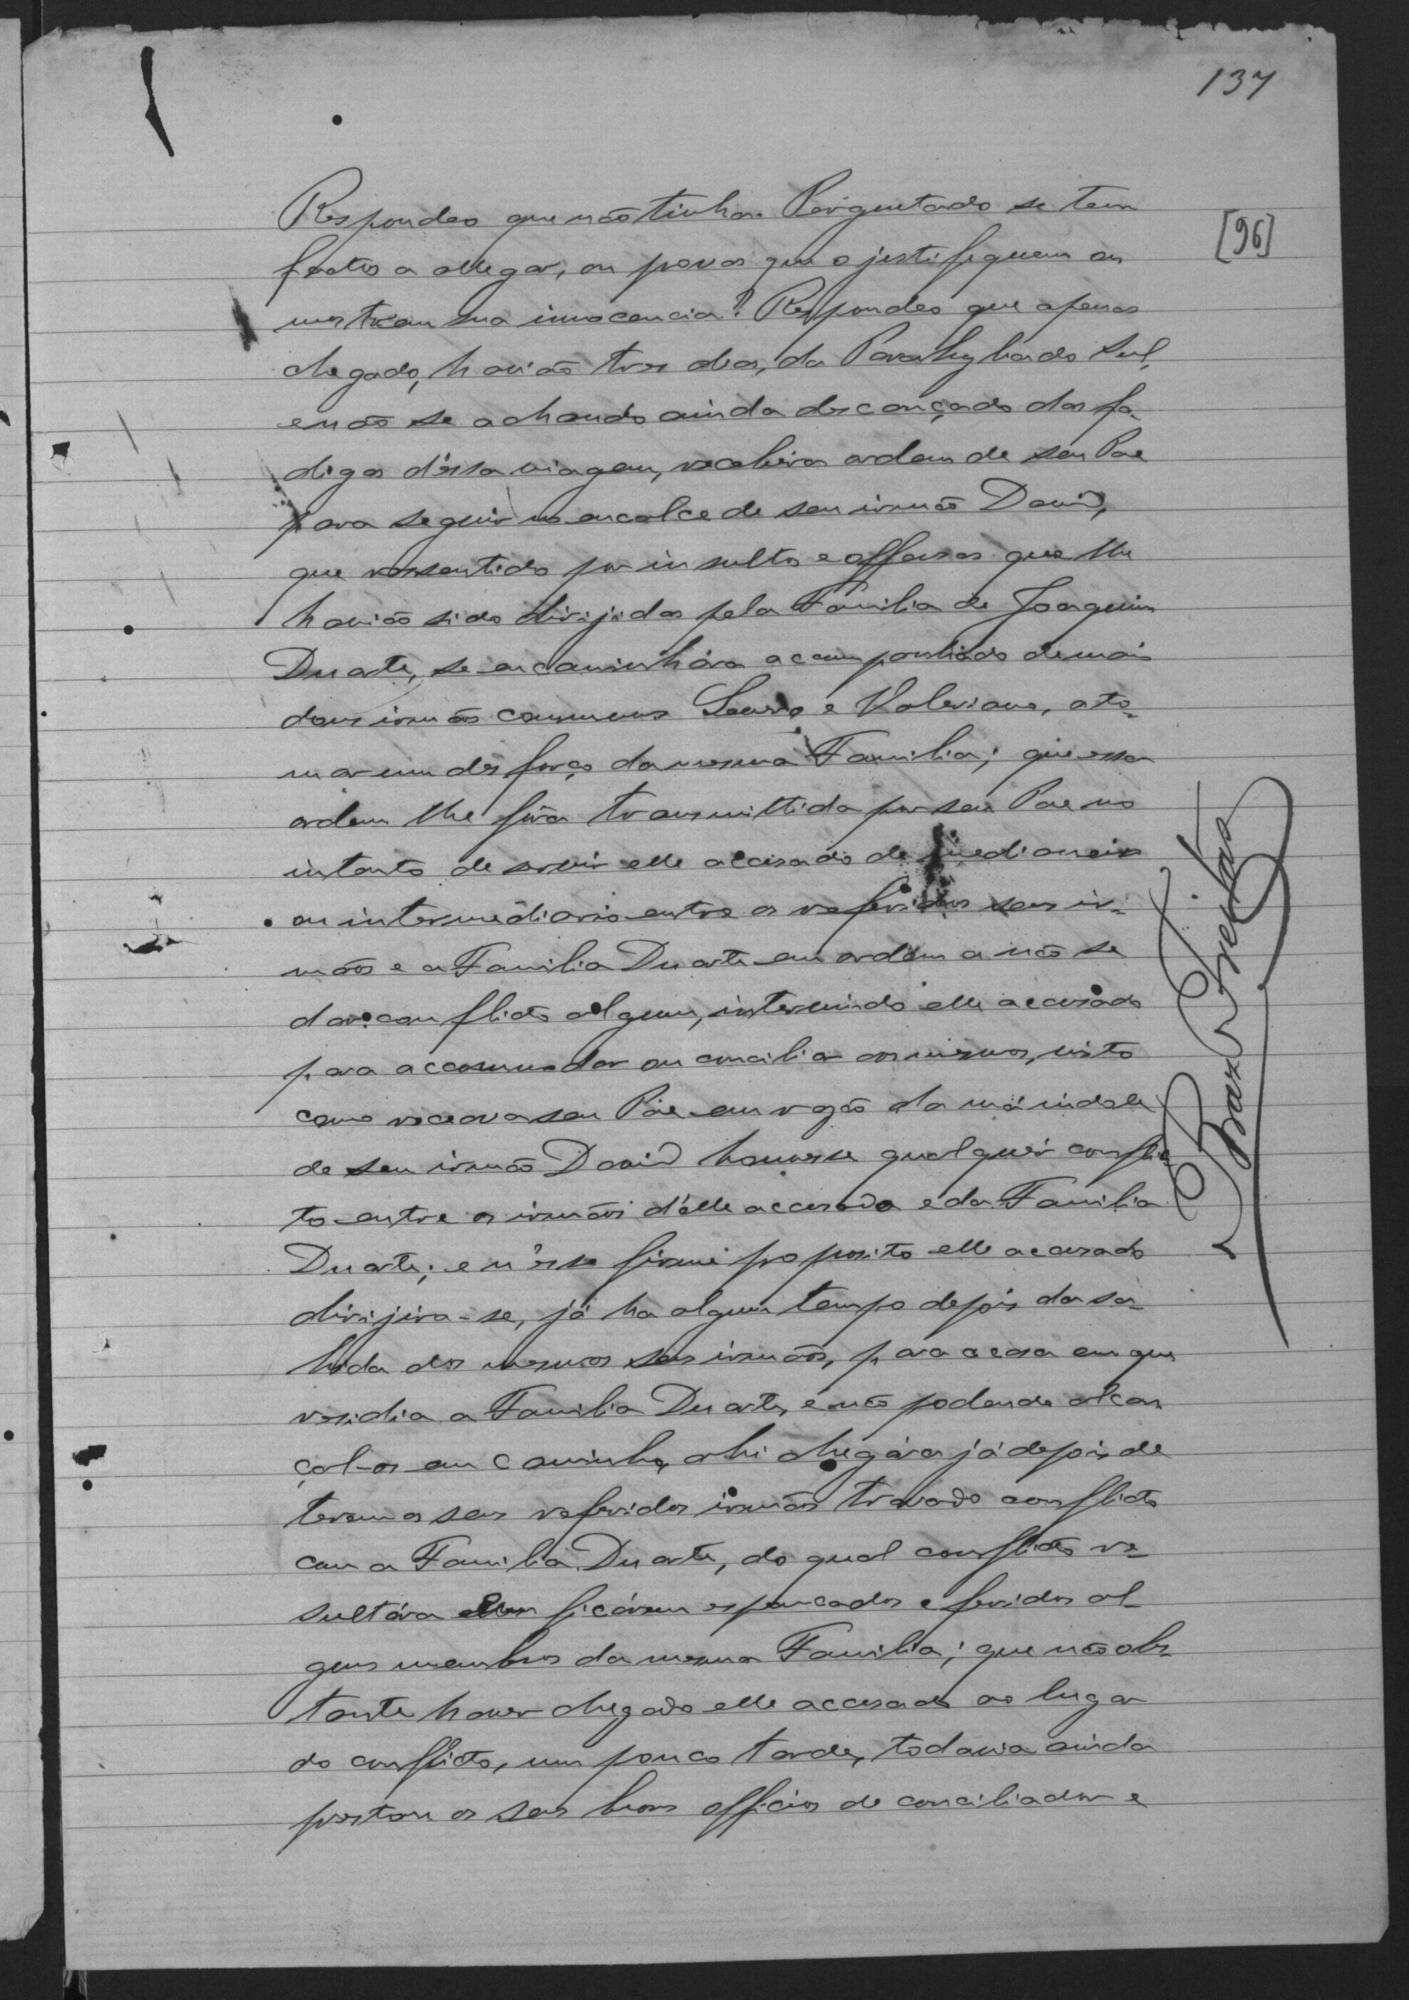 137
[96]
Respondeo que não tinha. Perguntado se tem
factos a allegar, ou provas que o justifiquem ou
mostrem sua innocencia? Respondeo que apenas
chegado, havião tres dias, da Parahyba do Sul,
e não se achando ainda descançado das fa-
digas d'essa viagem, recebera ordem de seu Pae
para seguir no encalce de seu irmão David,
que resentido por insultos e offensas que lhe
havião sido dirijidas pela Familia de Joaquim
Duarte, se encaminhára acompanhado de mais
dous irmãos communs e Valeriano, a to-
mar um desforço da mesma Familia; que essa
ordem lhe fôra transmittida por seu Pae no
intento de servir elle accusado de medianeiro
ou intermediario entre os referidos seus ir-
mãos e a Familia Duarte em ordem a não se
dar conflicto algum, intervindo elle accusado
para accommodar ou conciliar aos mesmos, visto
como receava seu Pae em rasão da má indole
de seu irmão David houvesse qualquer conflic-
to entre os irmãos d'elle accusado e da Familia
Duarte; e n'esse firme proposito elle accusado
dirijira-se, já ha algum tempo depois da sa-
hida dos mesmos seus irmãos, para a casa em que
residia a Familia Duarte, e não podendo alcan
çal-os em caminho, ahi chegára já depois de
terem os seus referidos irmãos travado conflicto
com a Familia Duarte, do qual conflicto re-
sultára ficárem espancados e feridos al-
guns membros da mesma Familia; que não obs-
tante haver chegado elle accusado ao lugar
do conflicto, um pouco tarde, todavia ainda
prestou os seus bons officios de conciliador e
Braz Freitas